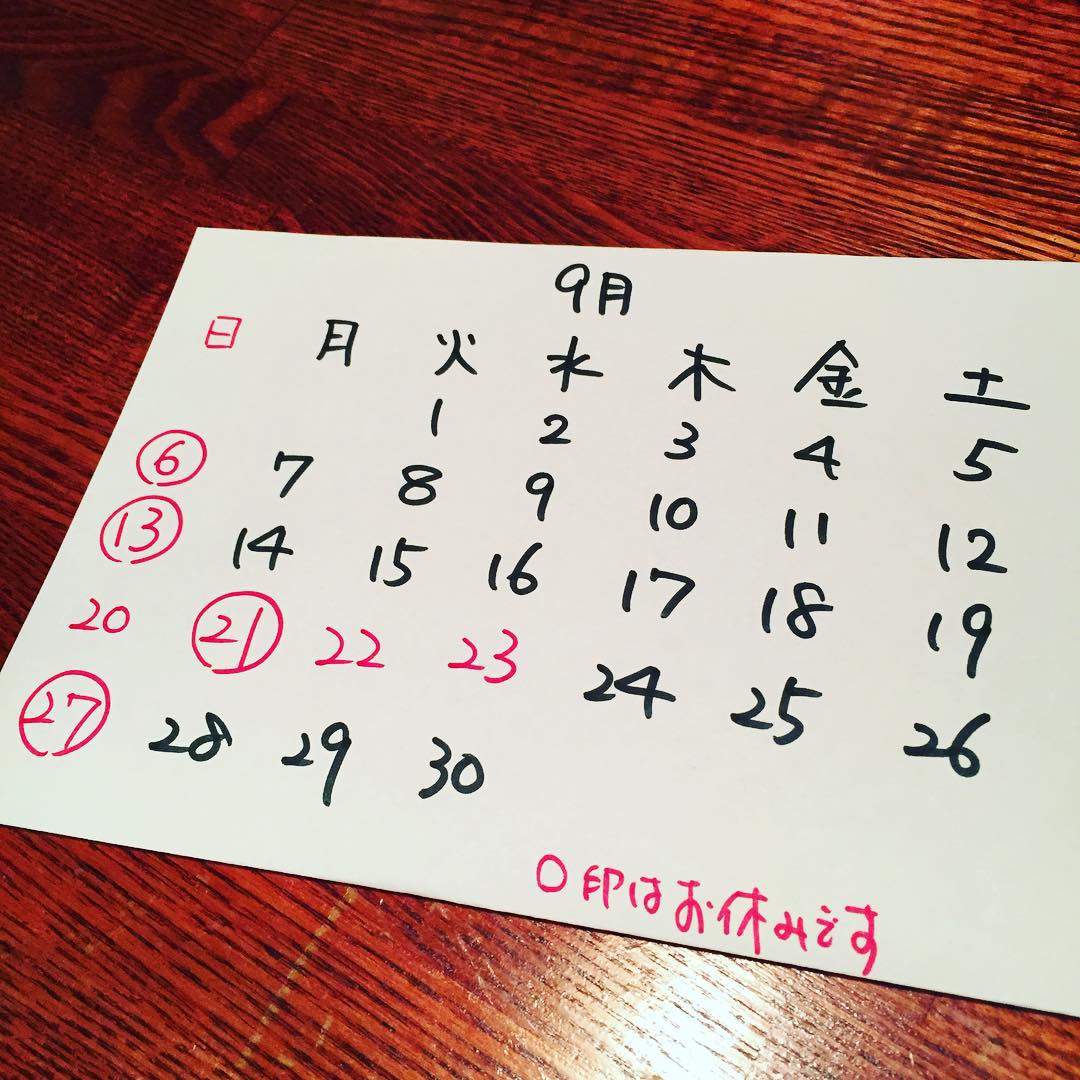 9月
日 月 火 水 木 金 土
1 2 3 4 5
6 7 8 9 10 11 12
13 14 15 16 17 18 19
20 21 22 23 24 25 26
27 28 29 30
○印はお休みです